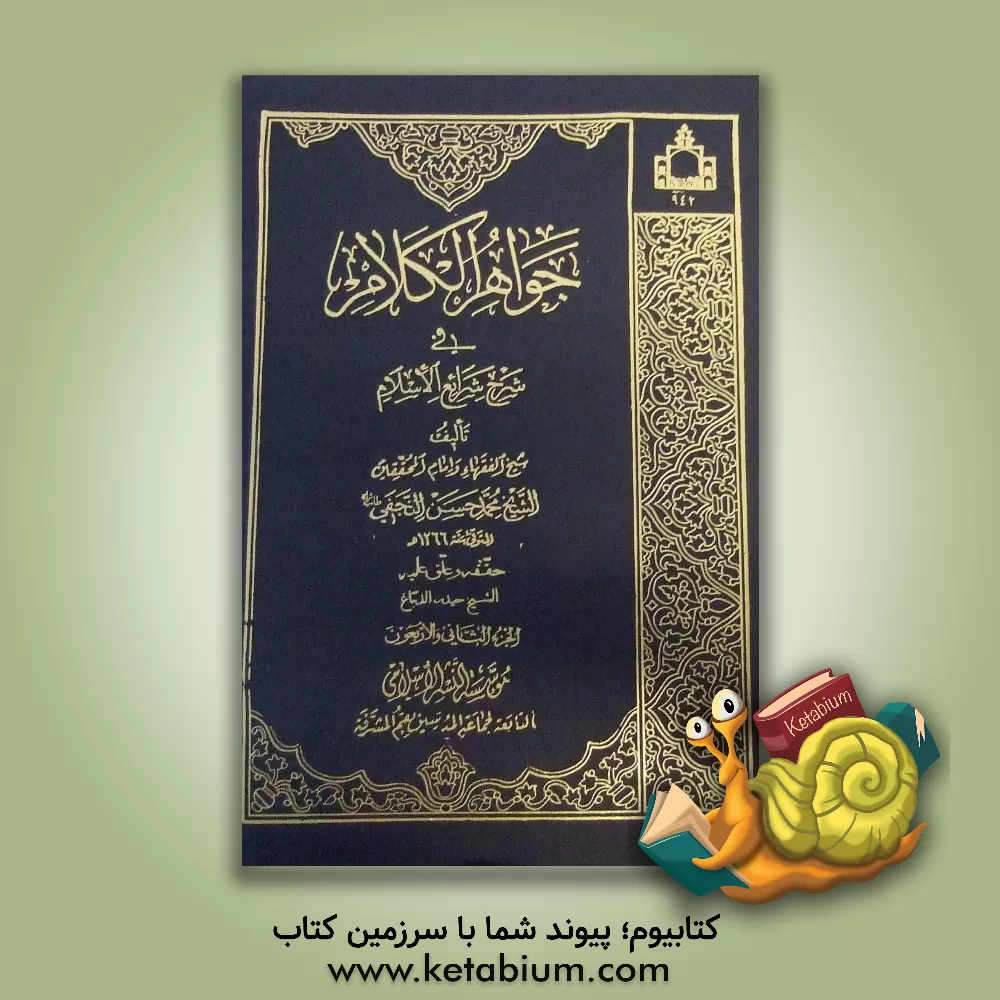 ٩٤٢
جَوَاهِرُ الْكَلَامِ
في
شَرْحِ شَرَائِعِ الْإِسْلَامِ
تَأْلِيفُ
شيخ الفقهاء وإمام المحققين
الشَّيْخ مُحَمَّد حَسَن النَّجَفِي
المتوفى سنة ١٢٦٦ هـ
حققه وعلق عليه
الشيخ حيدر الدباغ
الجزء الثاني والأربعون
مؤسسة النشر الإسلامي
التابعة لجماعة المدرسين بقم المشرفة
Ketabium
کتابیوم؛ پیوند شما با سرزمین کتاب
www.ketabium.com